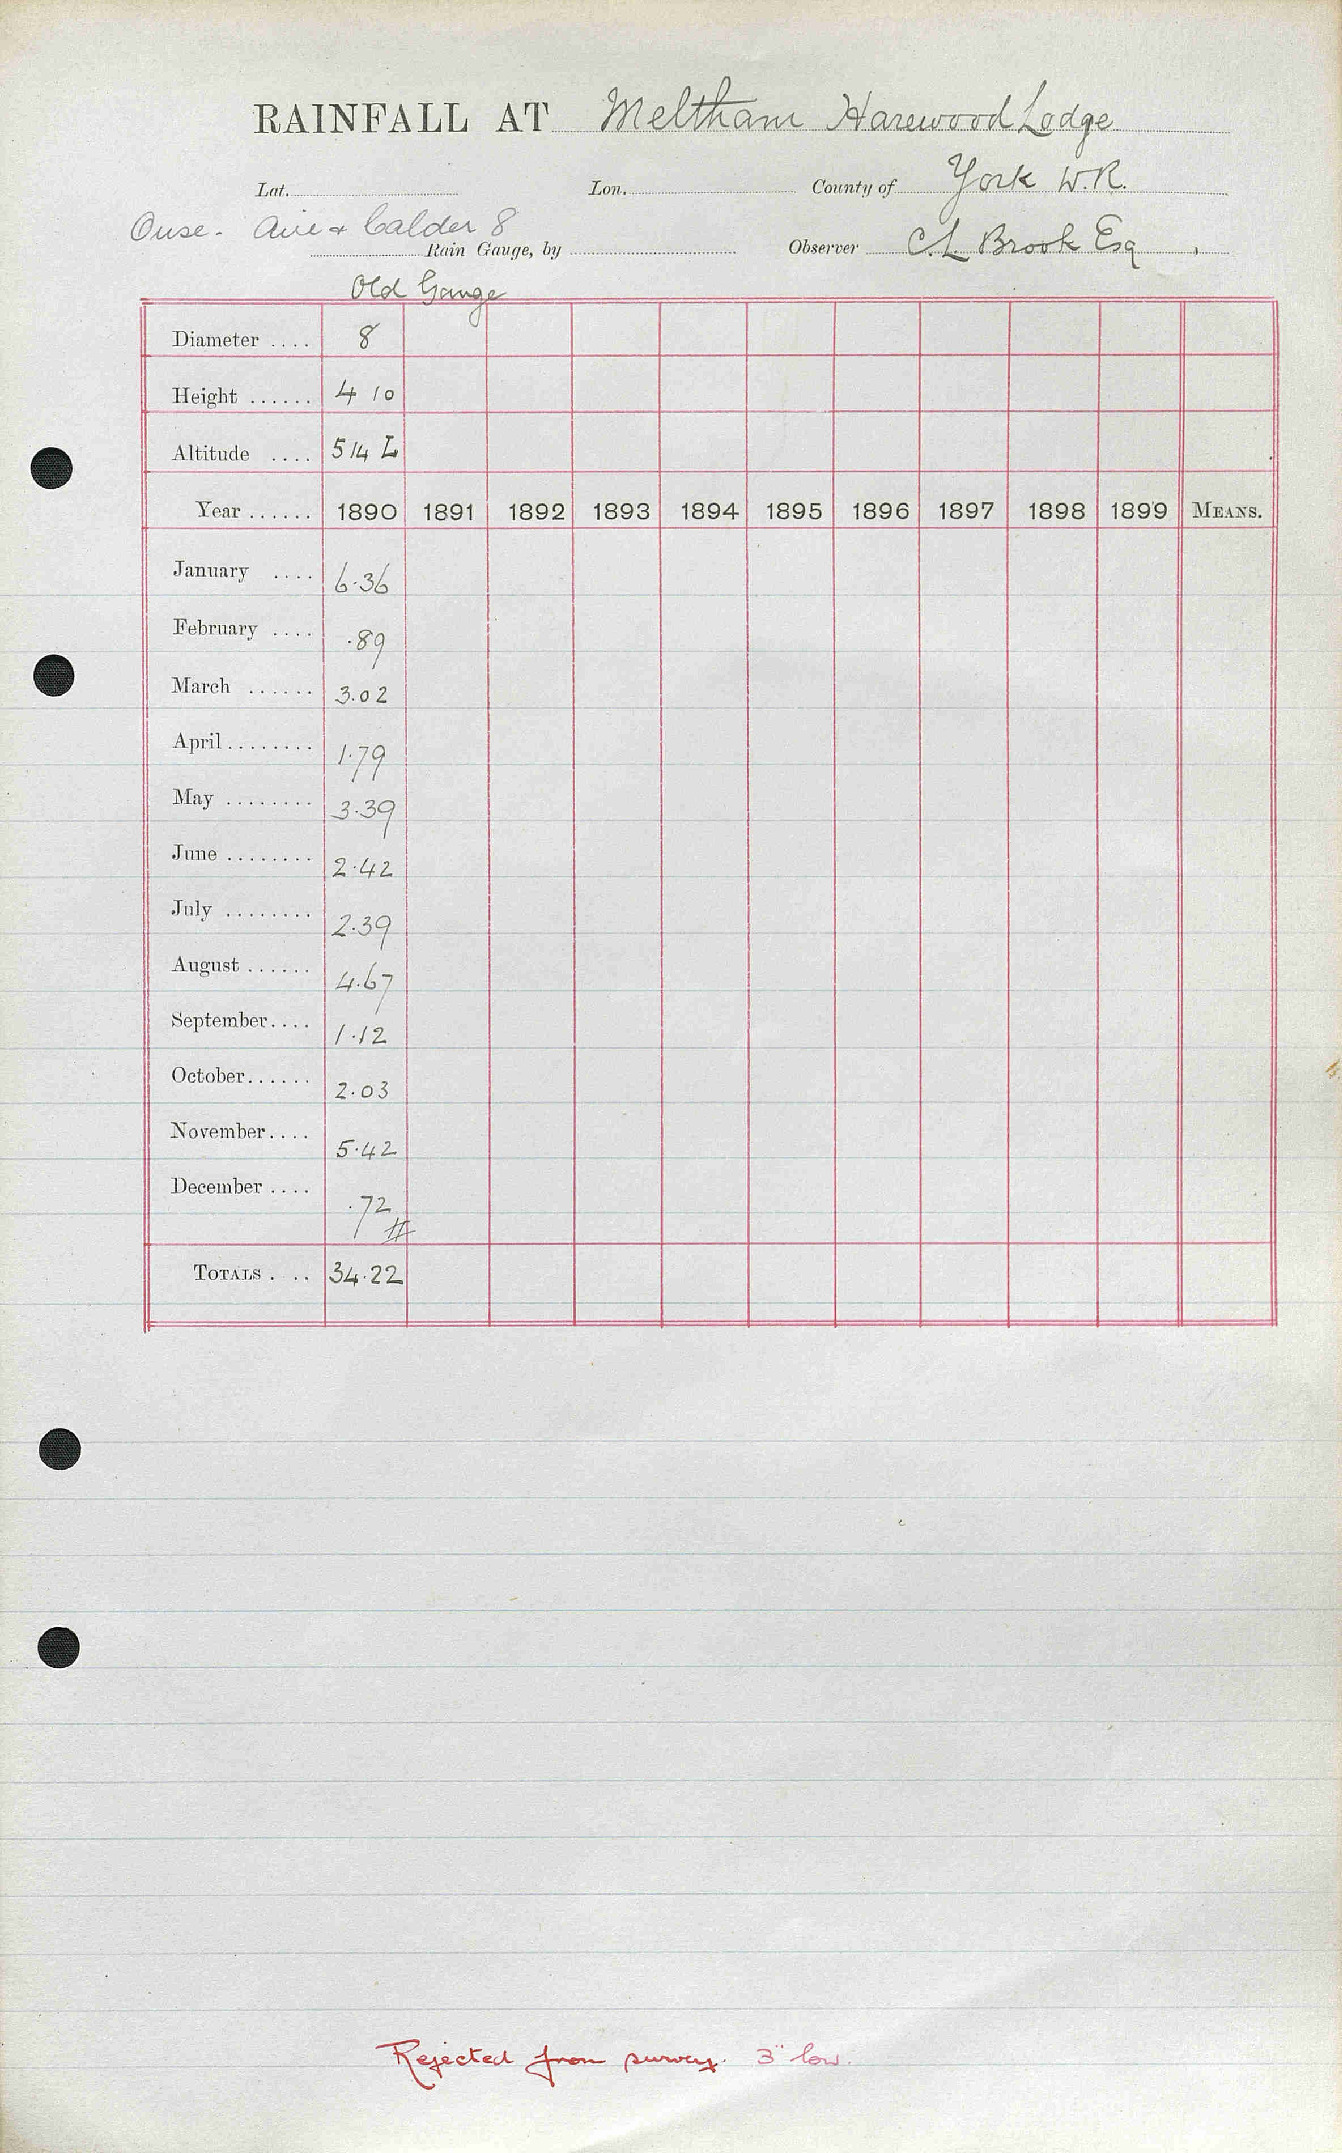 RAINFALL AT Meltham Harewood Lodge
Lat. Lon. County of York W.R.
Ouse - Aire & Calder 8
Rain Gauge, by Observer C.L Brook Esq
Old Gauge
Diameter .... 8
Height ...... 4 10
Altitude .... 514 L
Year ...... 1890 1891 1892 1893 1894 1895 1896 1897 1898 1899 MEANS.
January .... 6.36
February .... .89
March ...... 3.02
April ........ 1.79
May ........ 3.39
June ........ 2.42
July ........ 2.39
August ...... 4.67
September .... 1.12
October ...... 2.03
November .... 5.42
December .... .72
#
TOTALS . .. 34.22
Rejected from survey. 3" low.